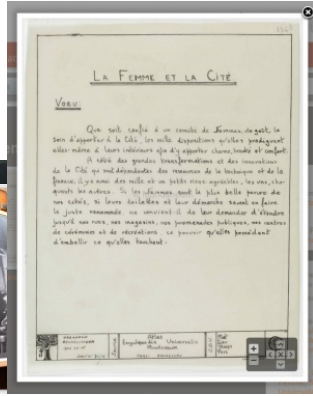 LA FEMME ET LA CITÉ
VOEU:
Que soit confié à un comité de femmes de goût, le
soin d'apporter à la Cité, les mille dispositions qu'elles prodiguent
elles-même à leurs intérieurs afin d'y apporter charme, beauté et confort.
A côté des grandes transformations et des innovations
de la Cité qui sont dépendantes des ressources de la technique et de la
finance, il y a ainsi des mille et un petits riens agréables, les uns, cho-
quants les autres. Si les femmes sont la plus belle parure de
nos cités, si leurs toilettes et leur démarche savent en faire
la juste renommée, ne convient-il de leur demander d'étendre
jusqu'à nos rues, nos magasins, nos promenades publiques, nos centres
de cérémonies et de récréations, ce pouvoir qu'elles possèdent
d'embellir ce qu'elles touchent.
Atlas
Encyclopedia Universalis
Mundaneum